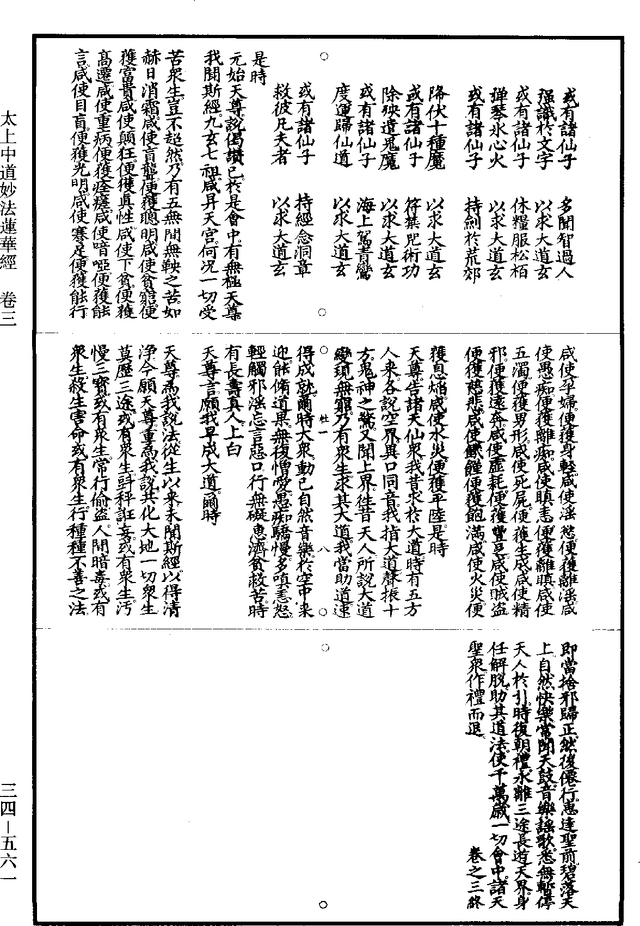 太上中道妙法蓮華經　卷三
三四－五六一
或有諸仙子　多聞智過人
强識於文字　以求大道玄
或有諸仙子　休糧服松栢
彈琴氷心火　以求大道玄
或有諸仙子　持劍於荒郊
降伏十種魔　以求大道玄
或有諸仙子　符禁呪術功
除殃遣鬼魔　以求大道玄
或有諸仙子　海上駕青鸞
度運歸仙道　以求大道玄
或有諸仙子　持經念洞章
救彼凡夫者　以求大道玄
是時
元始天尊說偈讚已於是會中有無極天尊
我聞斯經九玄七祖咸昇天宮何況一切受
苦衆生豈不超然乃有五無間無鞅之苦如
赫日消霜咸使盲聾便獲聰明咸使貧窮便
獲富貴咸使顛狂便獲真性咸使下賤便獲
高遷咸使重病便獲痊癒咸使喑啞便獲能
言咸使目盲便獲光明咸使蹇足便獲能行
咸使孕婦便獲身輕咸使淫慾便獲離淫咸
使愚癡便獲離癡咸使瞋恚便獲離瞋咸使
五濁便獲男形咸使死屍便獲生成咸使精
邪便獲遠奔咸使虛耗便獲豐足咸使賊盜
便獲慈悲咸使饑饉便獲飽滿咸使火災便
獲息焰咸使水災便獲平陸是時
天尊告諸天仙衆我昔求於大道時有五方
人來各說空界異口同音我指大道聲振十
方鬼神之驚又聞上界往昔天人所說大道
變現無窮乃有衆生求其大道我當助道速
杜一　八
得成就爾時大衆動已自然音樂於空中來
迎能脩道果無復憎愛愚痴驕慢多嗔恚怒
輕觸邪淫妄言惡口行無礙惠濟貧救苦時
有長壽真人上白
天尊言願我早成大道爾時
天尊爲我說法從生以來未聞斯經以得清
淨今願天尊重爲我說共化大地一切衆生
莫歷三途或有衆生㪷秤誑妄或有衆生汚
慢三寶或有衆生常行偷盜人間暗毒或有
衆生殺生害命或有衆生行種種不善之法
即當捨邪歸正然後僊行惠達聖前碧落天
上自然快樂常聞天鼓音樂謡歌悉無暫停
天人於引時復朝禮永離三途長遊天界身
任解脫助其道法使千萬歲一切會中諸天
聖衆作禮而退　卷之三終